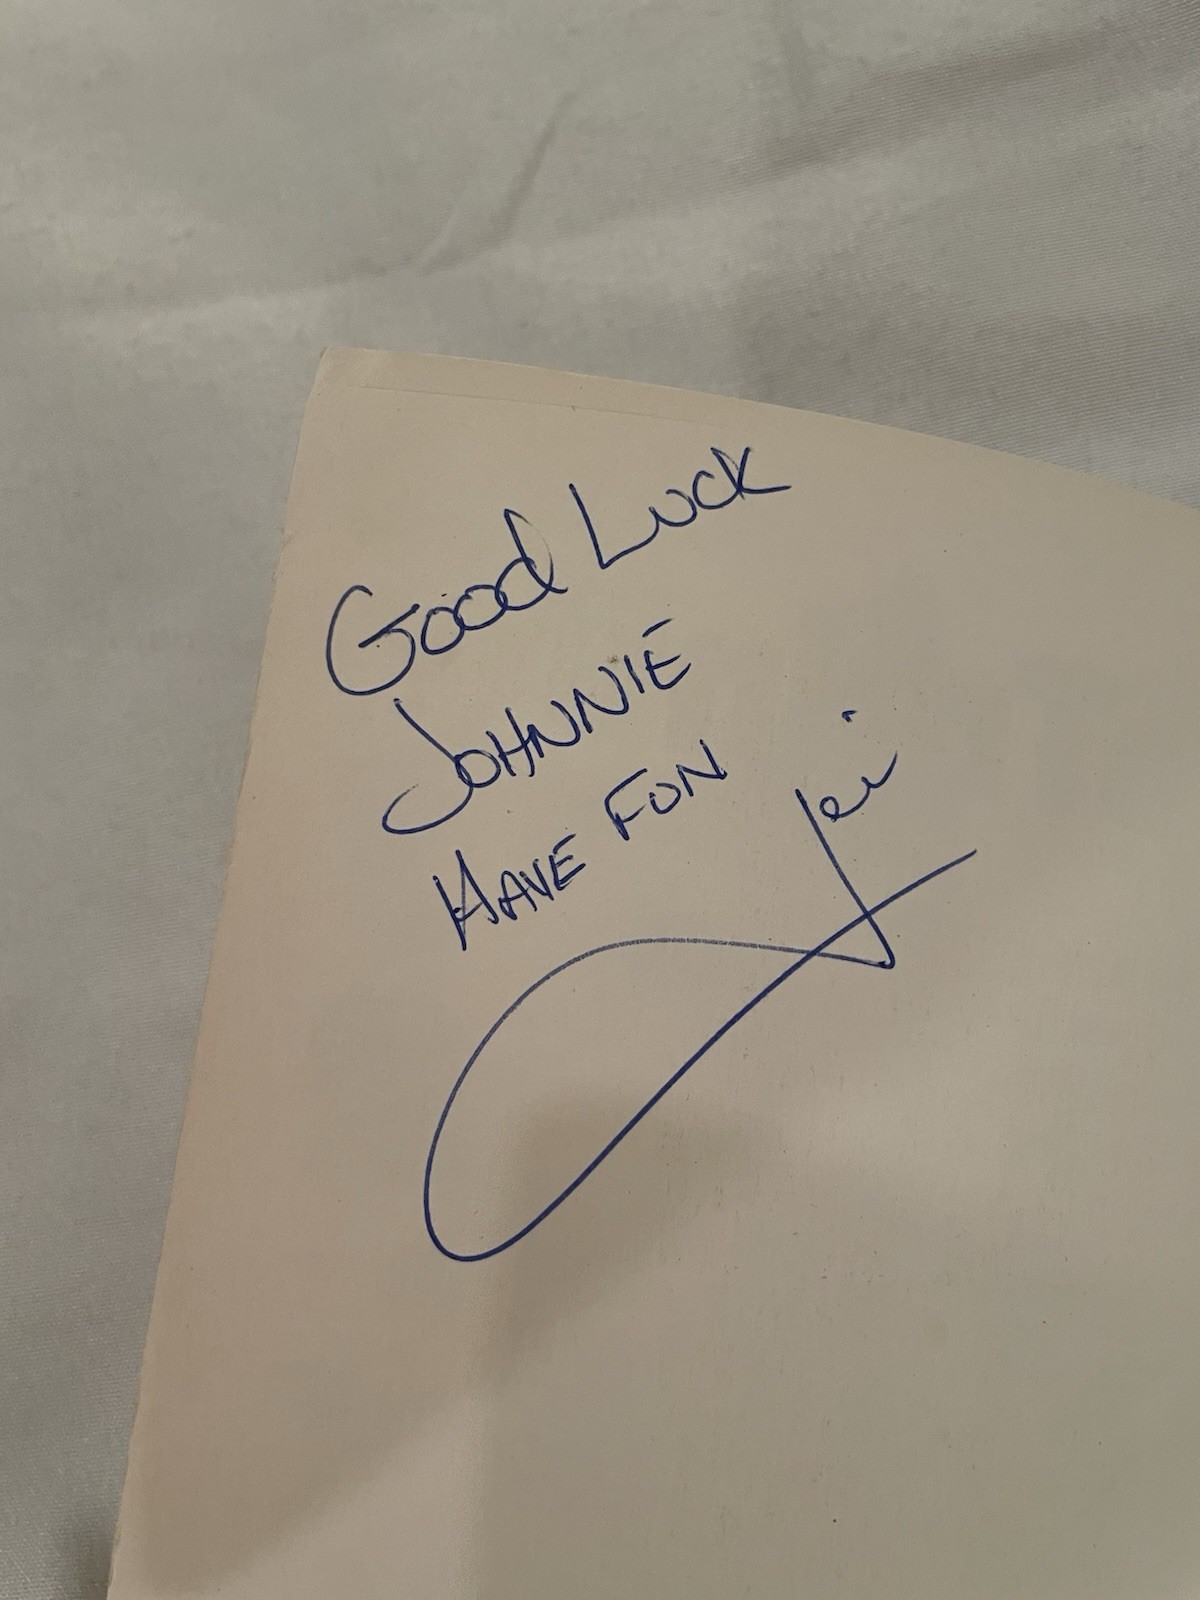 Good Luck
JOHNNIE
HAVE FUN